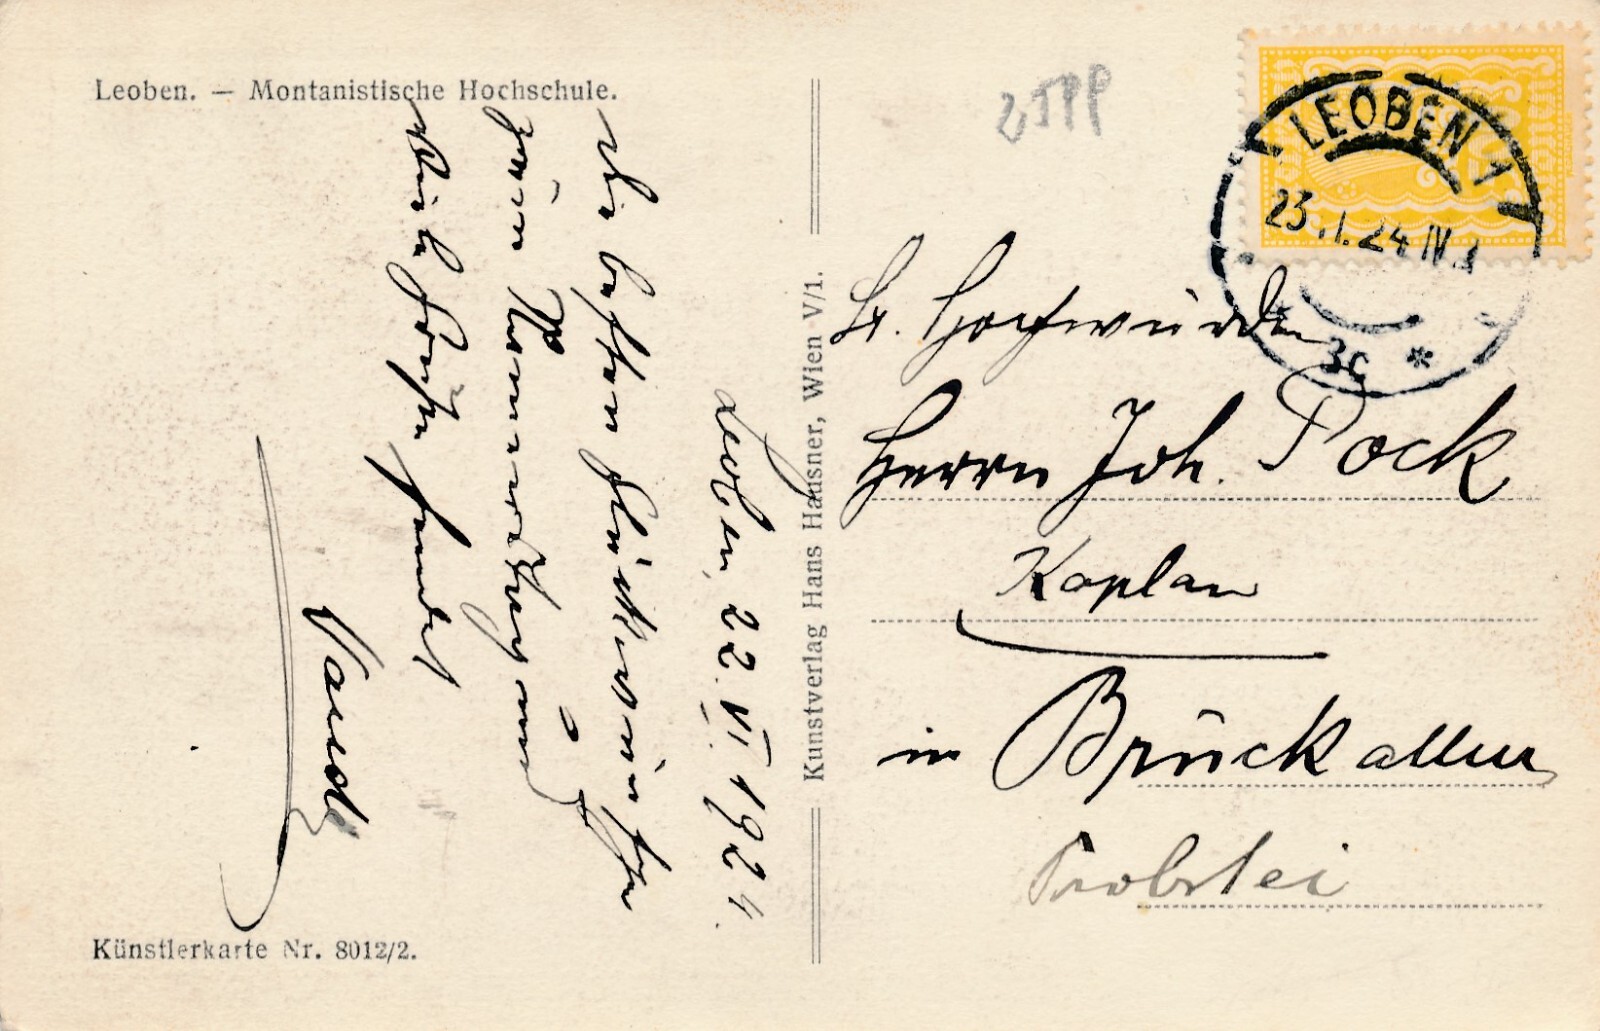 Leoben. — Montanistische Hochschule.
Leoben, 22. VI. 1924.
Die besten Glückwünsche
zum Namenstag und
viele Grüße sendet
Kunstverlag Hans Hausner, Wien V/1.
LEOBEN 1
23. 24 IV
3c *
Sr. Hochwürden
Herrn Joh. Pock
Kaplan
in Bruck a/Mur
Probstei
Künstlerkarte Nr. 8012/2.